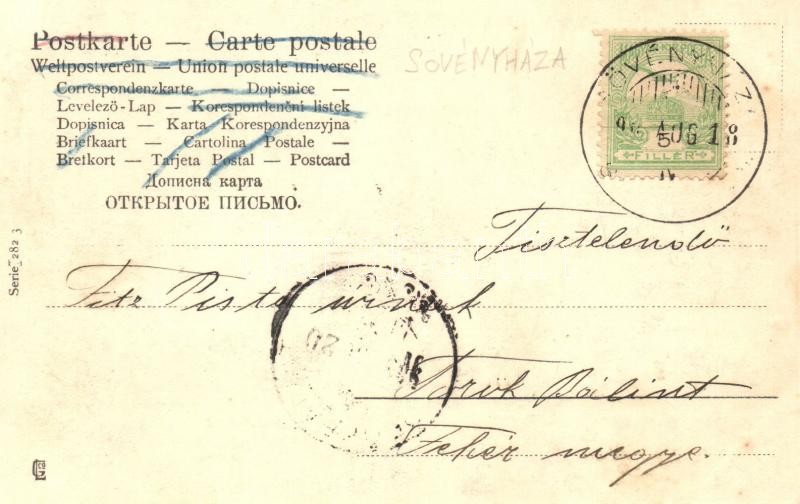 Postkarte — Carte postale
Weltpostverein — Union postale universelle
Correspondenzkarte — Dopisnice —
Levelező-Lap — Korespondenční lístek
Dopisnica — Karta Korespondenzyjna
Briefkaart — Cartolina Postale —
Brefkort — Tarjeta Postal — Postcard
Дописна карта
ОТКРЫТОЕ ПИСЬМО.
SÖVÉNYHÁZA
AUG 18
5
FILLÉR
Serie 282 3
Tisztelendő
Fitz Pista urnak
Török Bálint
Fehér megye.